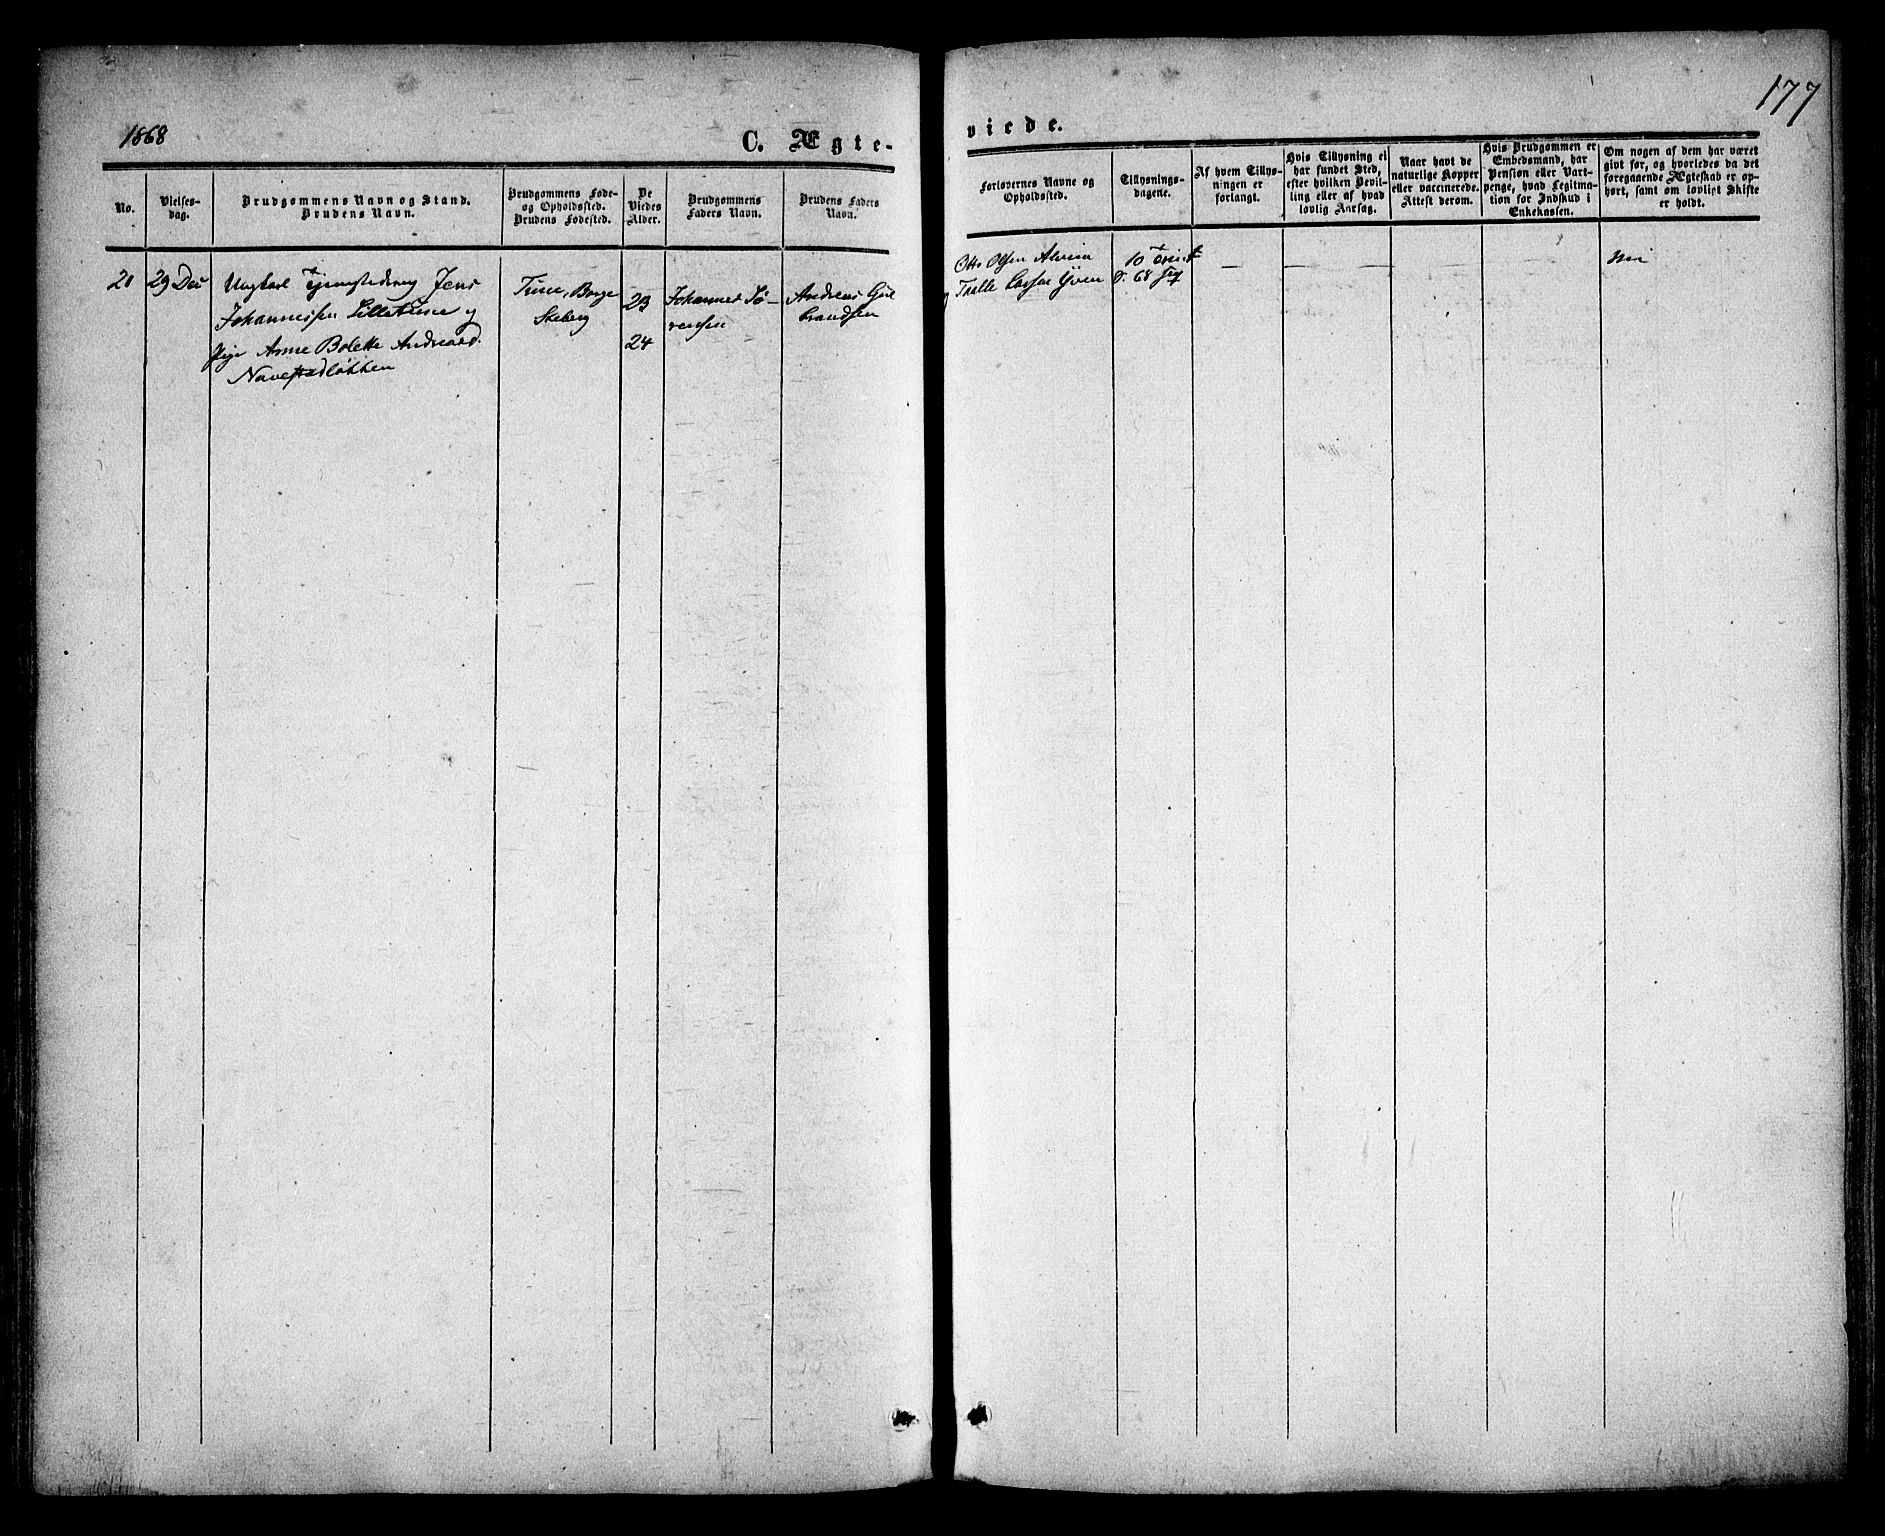 1868
C. Ægte-
No.
Vielses-
dag.
Brudgommens Navn og Stand.
Brudens Navn.
Brudgommens Føde-
og Opholdssted.
Brudens Fødested.
De
Viedes
Alder.
Brudgommens
Faders Navn.
Brudens Faders
Navn.
21
29 Dec
Ungkarl Jens
Johannessen Lilletune og
Pige Anne Bolette Andreasd.
Navestadløkken
Tune, Borge
Skeberg
23
24
Johannes Sø-
rensen
Andreas Gul
brandsen
177
viede.
Forlovernes Navne og
Opholdssted.
Tillysnings-
dagene.
Af hvem Tillys-
ningen er
forlangt.
Hvis Tillysning ei
har fundet Sted,
efter hvilken Bevil-
ling eller af hvad
lovlig Aarsag.
Naar havt de
naturlige Kopper
eller vaccinerede.
Attest derom.
Hvis Brudgommen er
Embedsmand, har
Pension eller Vart-
penge, hvad Legitima-
tion for Indskud i
Enkekassen.
Om nogen af dem har været
givt før, og hvorledes da det
foregaaende Ægteskab er op-
hørt, samt om lovligt Skifte
er holdt.
Otto Olsen Alvim
Taalle Larsen Yven
10 Trinit
S. 68 flg
— — — — —
Nei